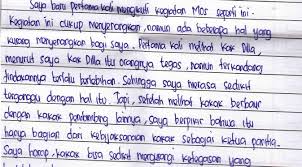 Saya baru pertama kali mengikuti kegiatan MOS seperti ini.
Kegiatan ini cukup menyenangkan, namun ada beberapa hal yang
kurang menyenangkan bagi saya. Pertama kali melihat kak Dilla,
menurut saya kak Dilla itu orangnya tegas, namun terkandang
tindakannya terlalu berlebihan. Sehingga saya merasa sedikit
terganggu dengan hal itu. Tapi, setelah melihat kakak berbaur
dengan kakak pendamping lainnya, saya berpikir bahwa itu
hanya bagian dari kebijaksanaan kakak sebagai ketua panitia.
Saya harap, kakak bisa sedikit mengurangi ketegasan yang